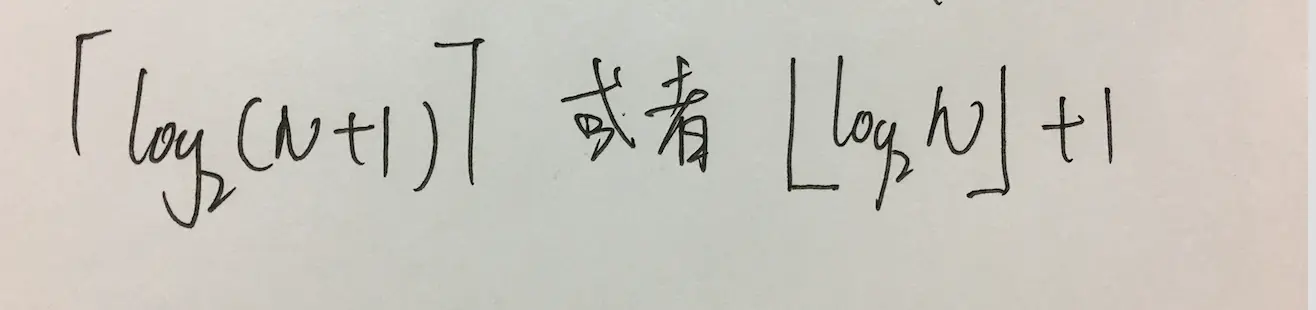 ⌈log₂(N+1)⌉ 或者 ⌊log₂N⌋+1